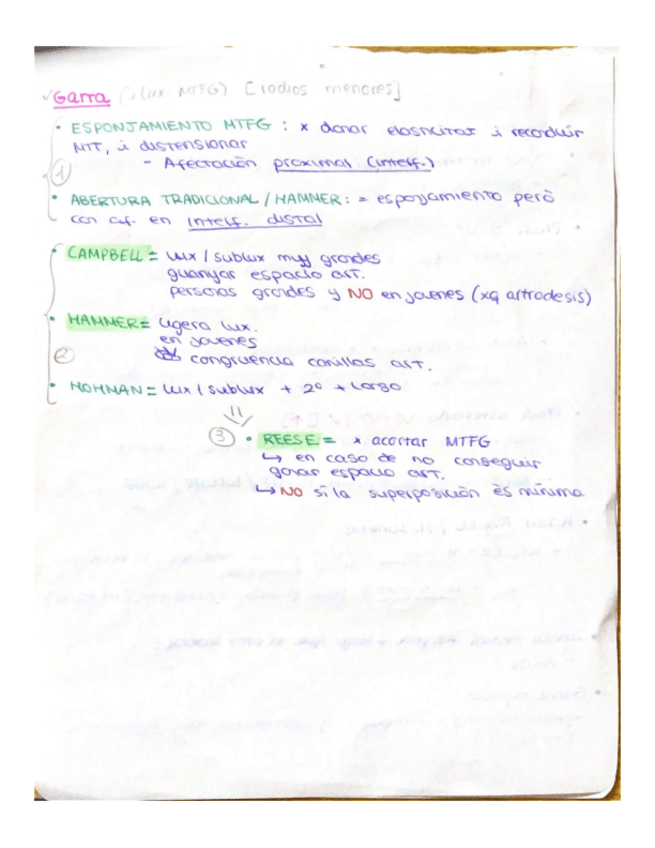 Garra (↓lux MTFG) [radios menores]
• ESPONJAMIENTO MTFG : x donar elasticitat i reconduir
MTT, i distensionar
- Afectación proximal (interf.)
①
• ABERTURA TRADICIONAL / HAMMER : = esponjamiento però
con af. en interf. distal
• CAMPBELL = lux / sublux muy grandes
guanyar espacio art.
personas grandes y NO en jovenes (xq artrodesis)
• HAMMER = ligera lux.
en jovenes
② congruencia carillas art.
• HOHMAN = lux / sublux + 2º + largo
③ • REESE = x acortar MTFG
↳ en caso de no conseguir
ganar espacio art.
↳ NO si la superposición és mínima